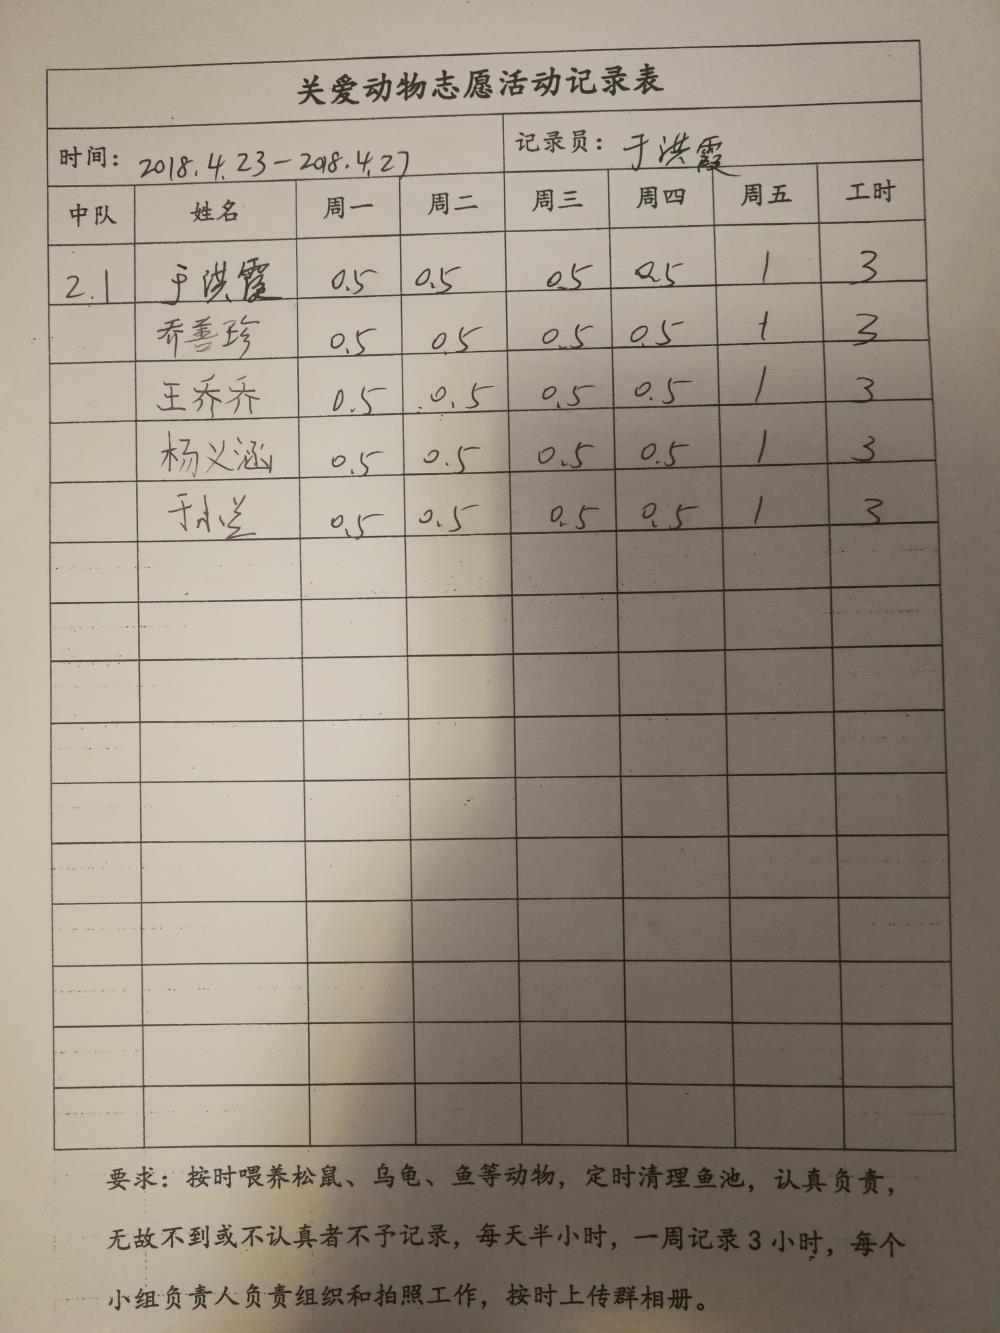 关爱动物志愿活动记录表
时间：2018.4.23-2018.4.27 记录员：于洪霞
中队 姓名 周一 周二 周三 周四 周五 工时
2.1 于洪霞 0.5 0.5 0.5 0.5 1 3
乔善珍 0.5 0.5 0.5 0.5 1 3
王乔乔 0.5 0.5 0.5 0.5 1 3
杨义涵 0.5 0.5 0.5 0.5 1 3
于小兰 0.5 0.5 0.5 0.5 1 3
要求：按时喂养松鼠、乌龟、鱼等动物，定时清理鱼池，认真负责，
无故不到或不认真者不予记录，每天半小时，一周记录3小时，每个
小组负责人负责组织和拍照工作，按时上传群相册。